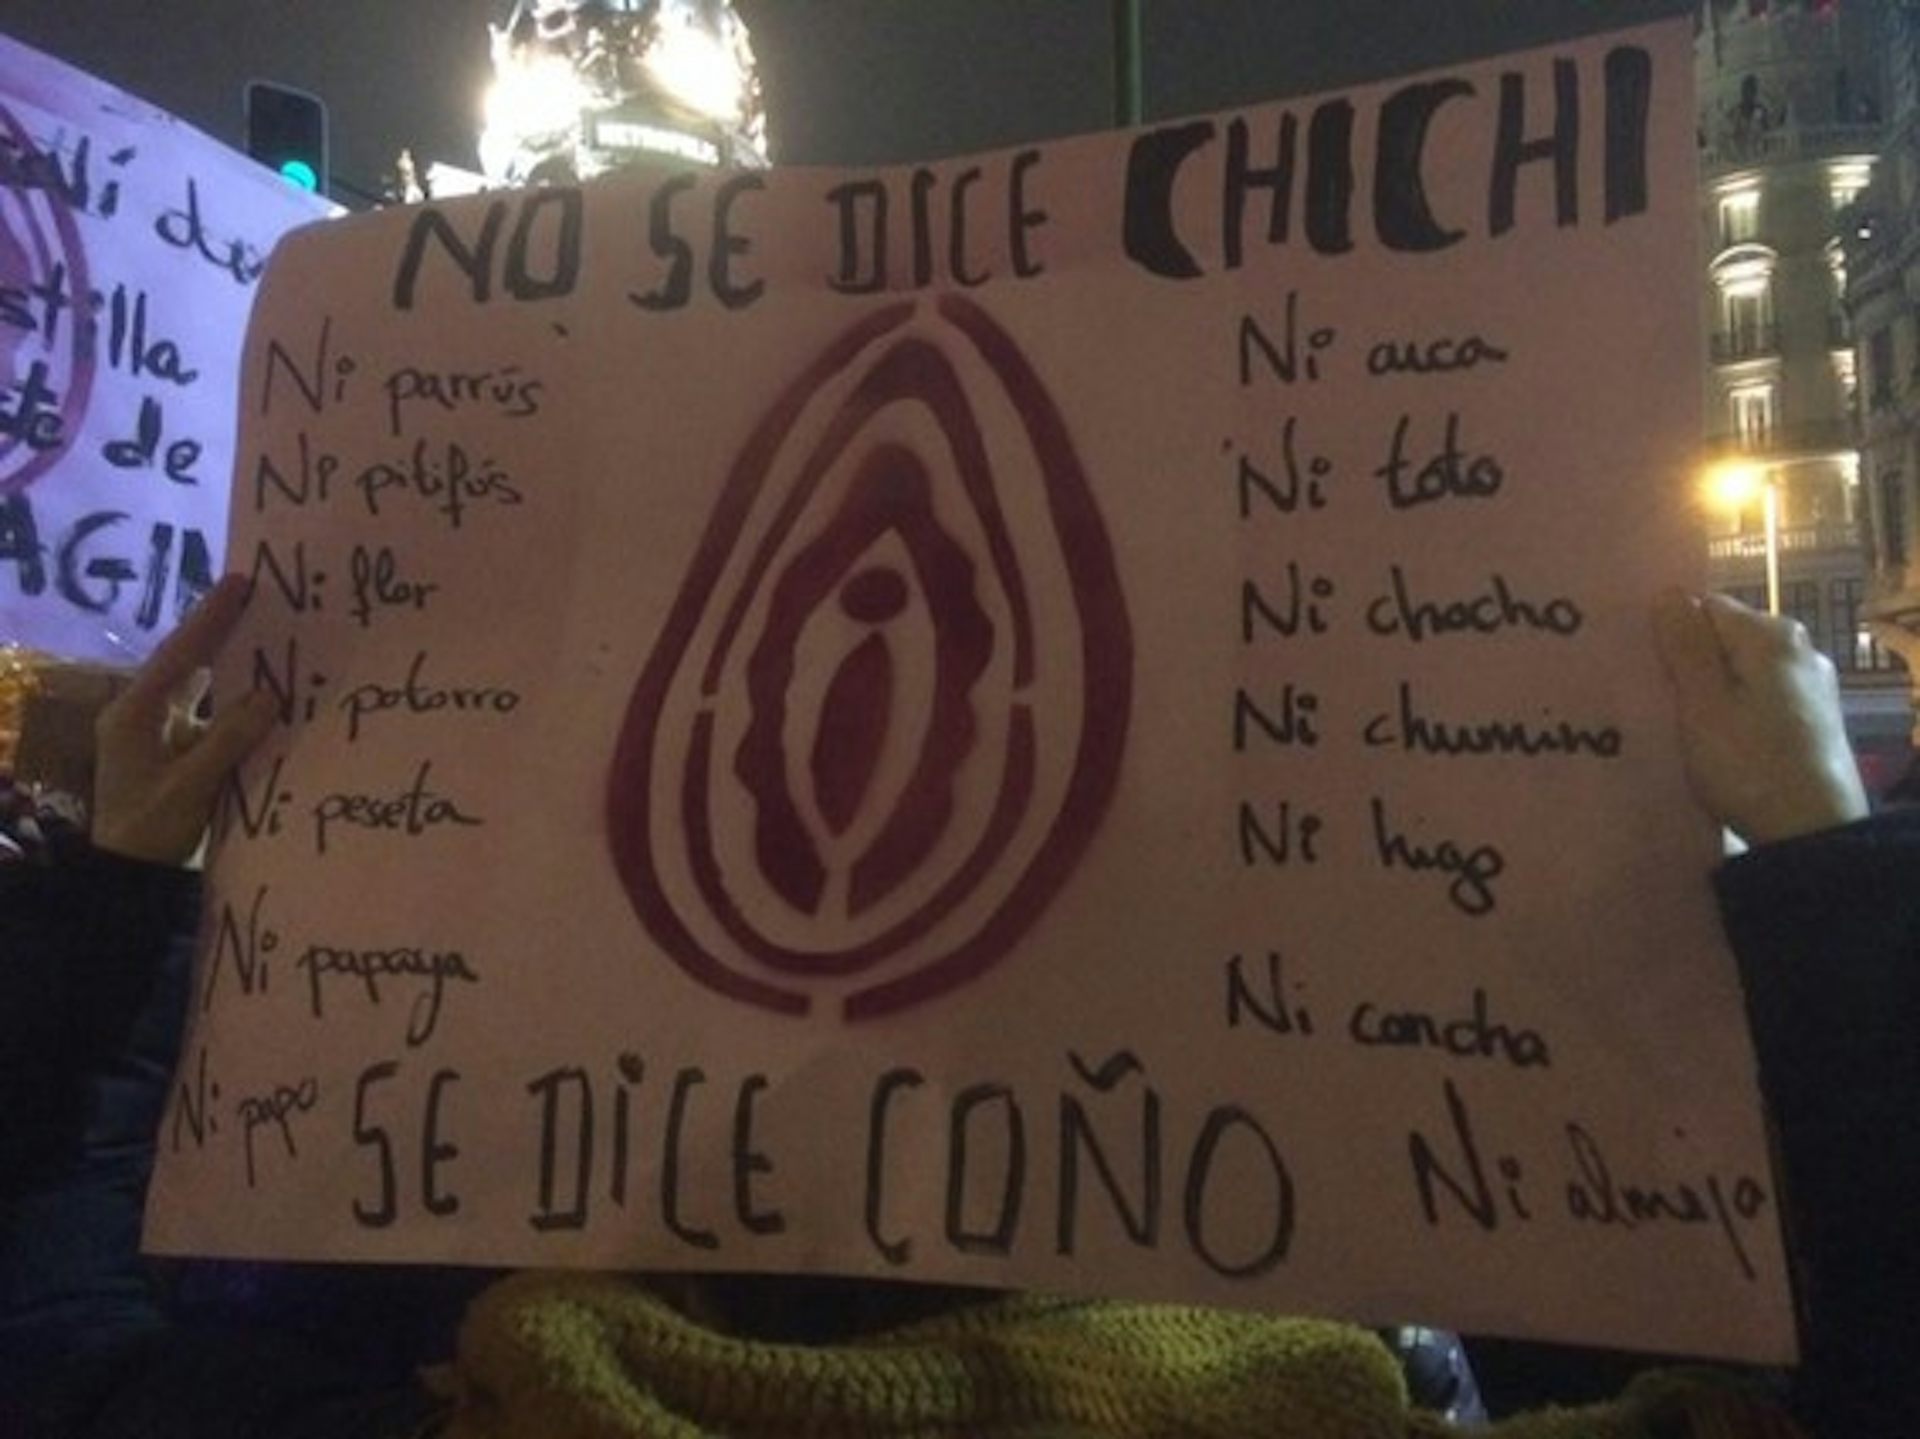 NO SE DICE CHICHI
Ni parrús
Ni pitifús
Ni flor
Ni potorro
Ni peseta
Ni papaya
Ni papo
Ni auca
Ni toto
Ni chocho
Ni chumino
Ni higo
Ni concha
Ni almeja
SE DiCE COÑO
stilla
de
AGIN